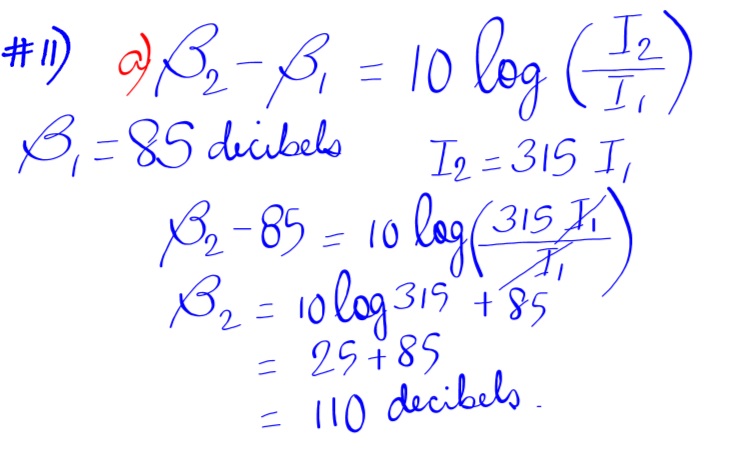 #11) a) β₂ - β₁ = 10 log (I₂/I₁)
β₁ = 85 decibels I₂ = 315 I₁
β₂ - 85 = 10 log(315 I₁/I₁)
β₂ = 10 log 315 + 85
= 25 + 85
= 110 decibels.